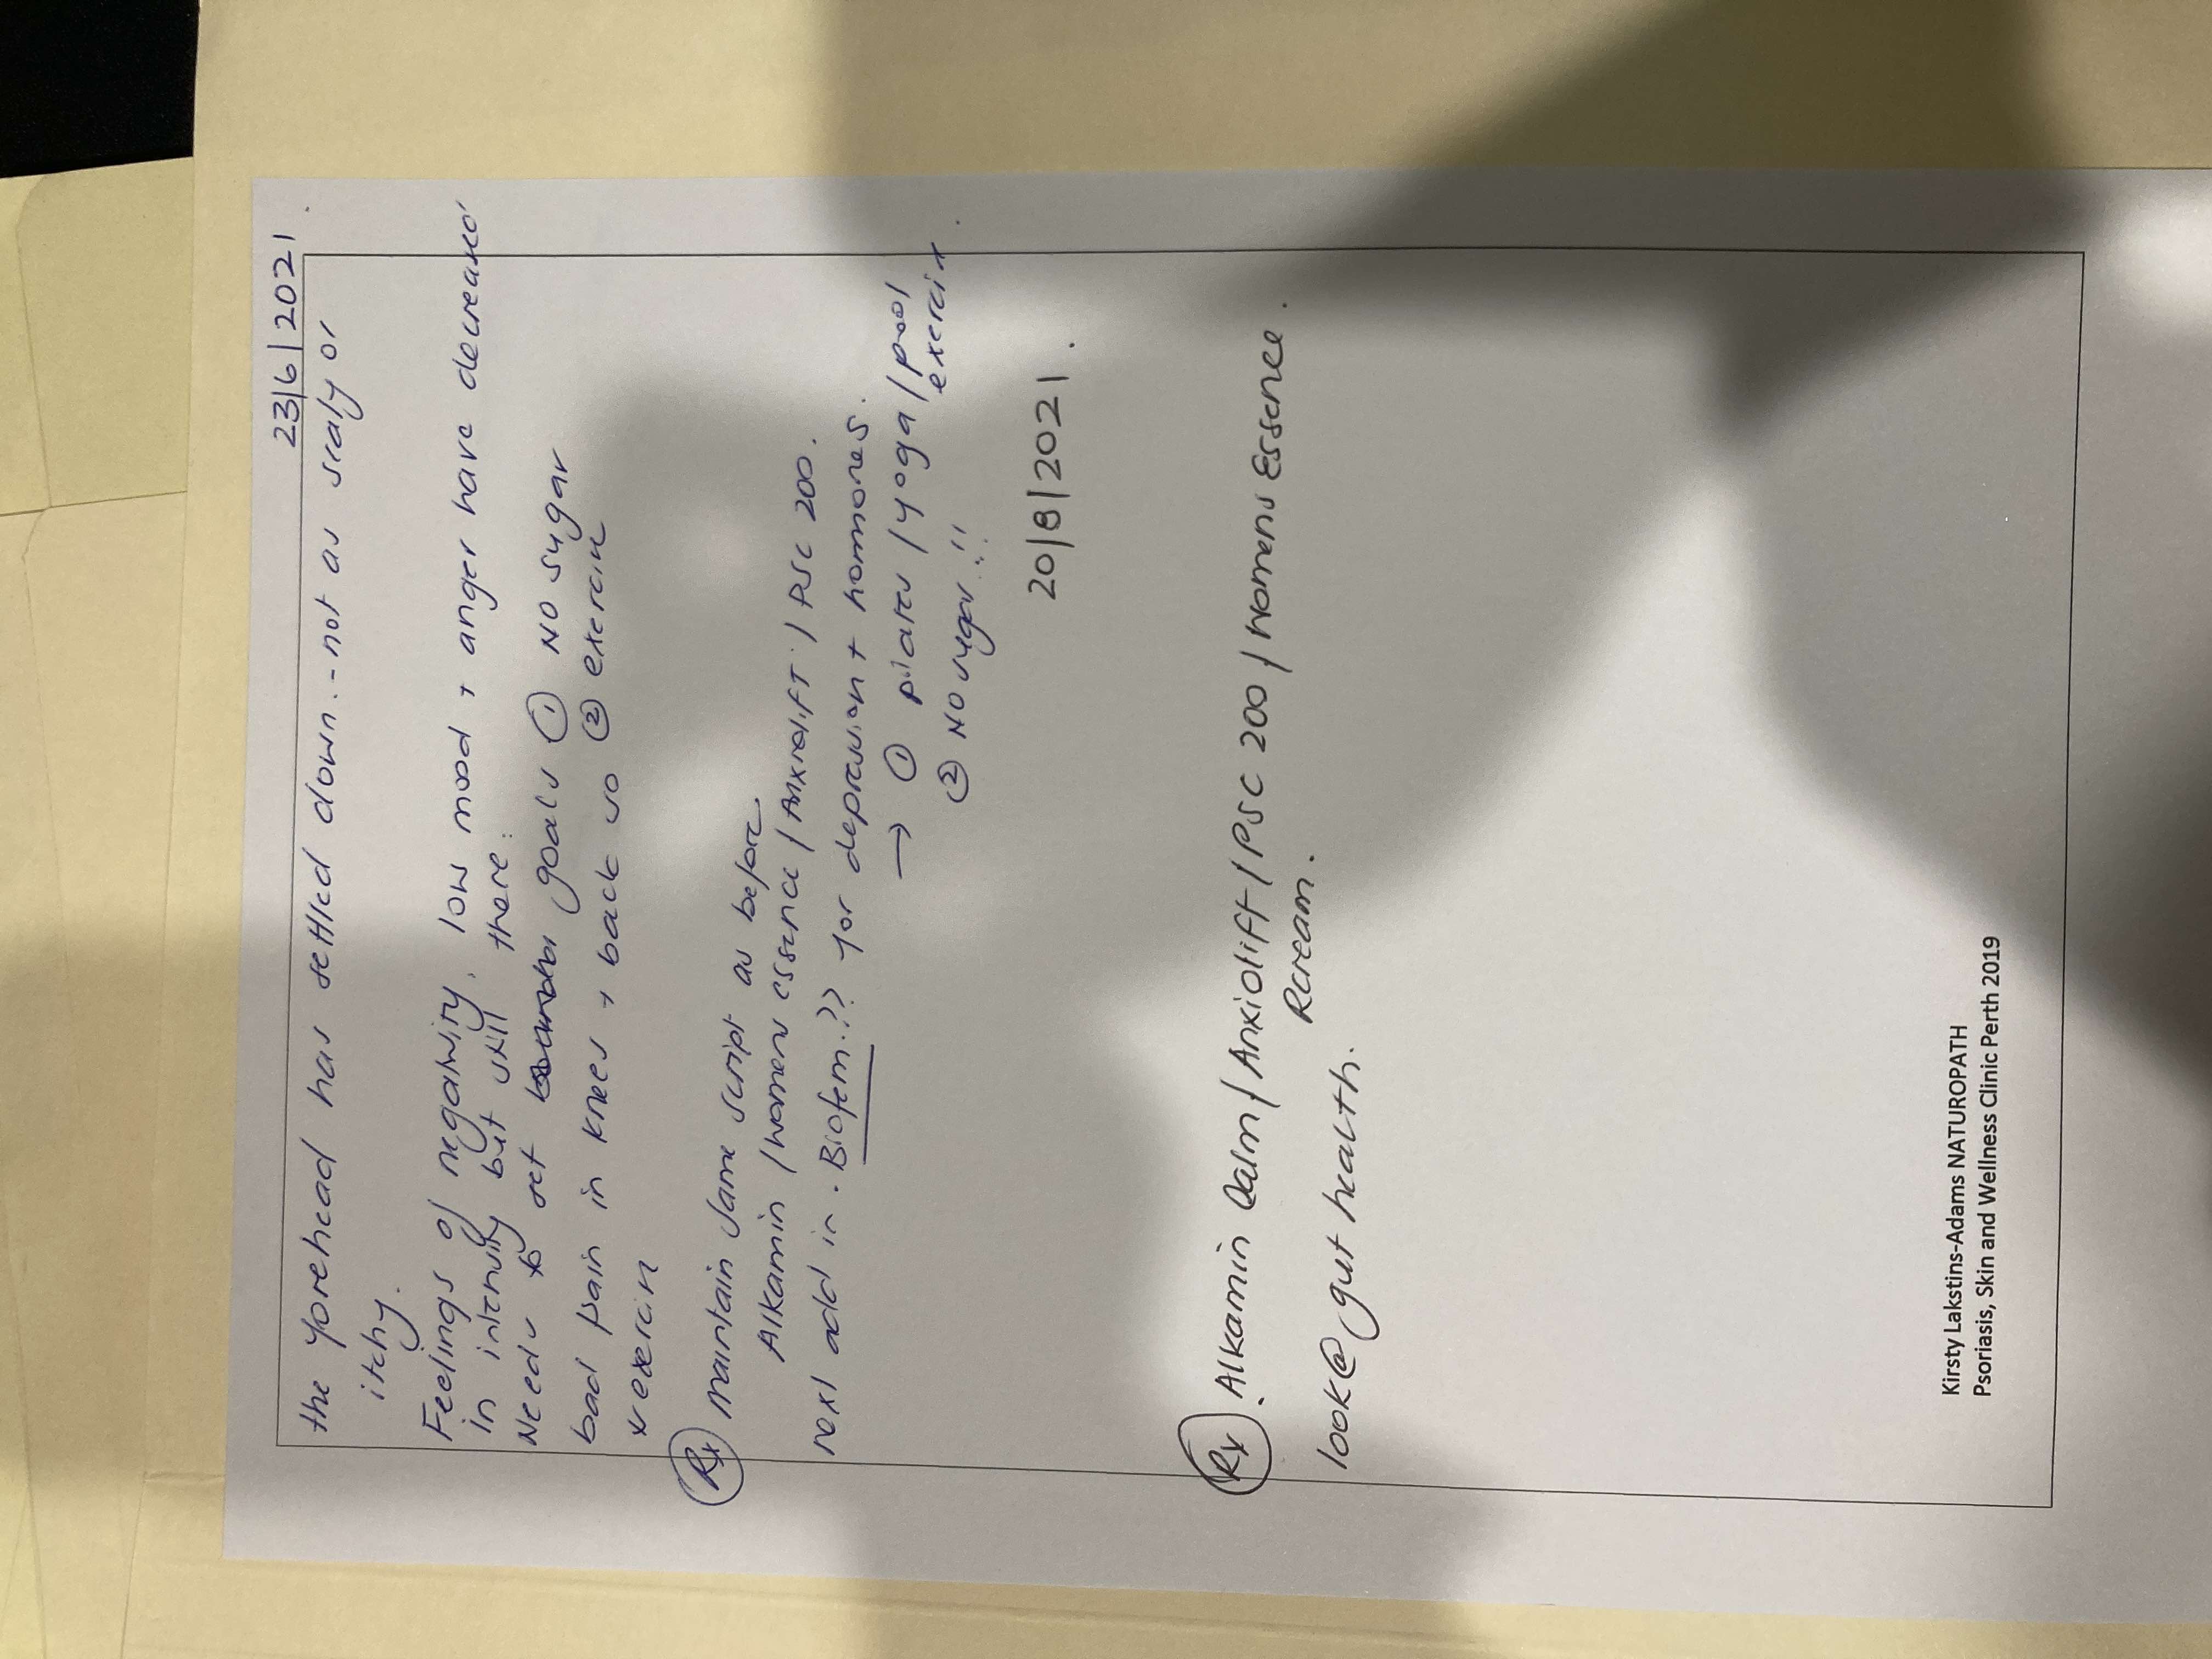 23/6/2021
the forehead has settled down. - not as scaly or
itchy.
Feelings of negativity, low mood + anger have decreased
in intensity but still there.
Needs to set goals ① NO sugar
bad pain in knees + back so ② exercise
exercise
Rx maintain same script as before
Alkamin / womens essence / Anxiolift / PSC 200.
next add in . Biofem?? for depression + hormones.
→ ① pilates / yoga / pool
exercise
② NO sugar!!
20/8/2021.
Rx . Alkamin Calm / Anxiolift / PSC 200 / Womens Essence.
Rcream.
look @ gut health.
Kirsty Lakstins-Adams NATUROPATH
Psoriasis, Skin and Wellness Clinic Perth 2019